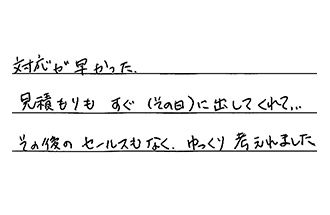 対応が早かった.
見積もりも すぐ(その日)に出してくれて...
その後の セールスもなく. ゆっくり 考えれました